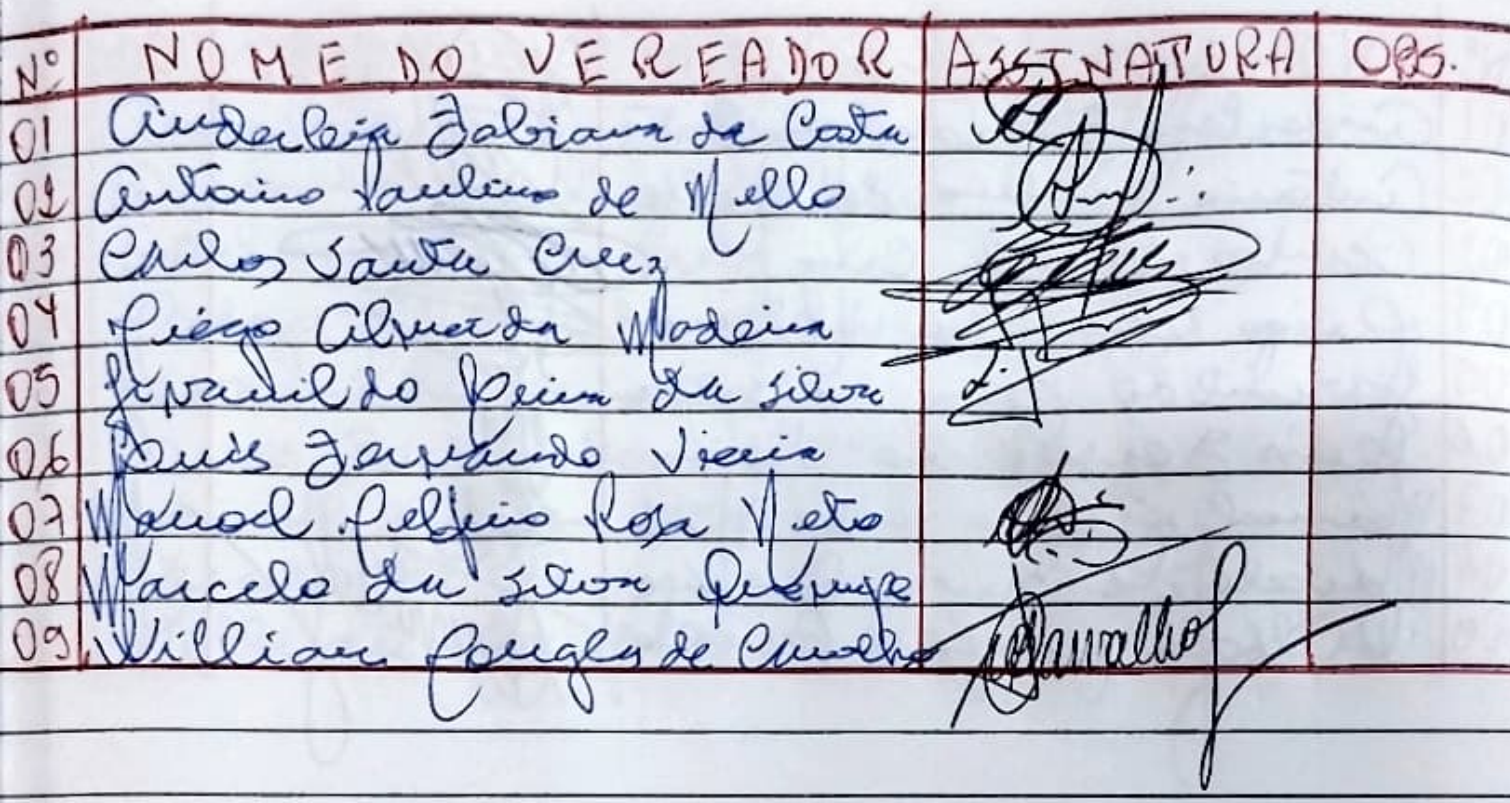 Nº NOME DO VEREADOR ASSINATURA OBS.
01 Anderleia Fabiana da Costa
02 Antonio Paulino de Mello
03 Carlos Santa Cruz
04 Diego Almeida Madeira
05 Jivanildo da Silva
06 Luis Fernando Vieira
07 Manoel Delfino Rosa Neto
08 Marcelo da Silva
09 Willian Douglas de Carvalho Carvalho